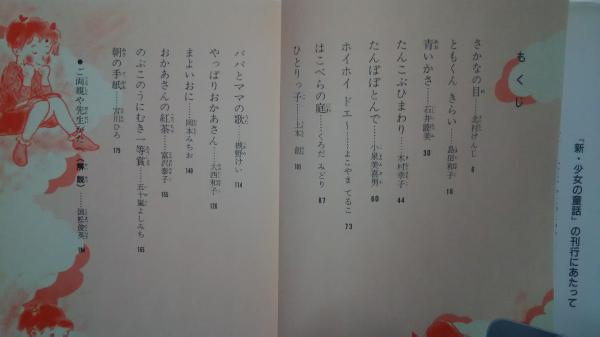 『新・少女の童話』の刊行にあたって
もくじ
さかなの目……北村けんじ 6
ともくん きらい……島田和子 18
青いかさ……石井睦美 30
たんこぶひまわり……木村幸子 44
たんぽぽとんで……小泉美喜男 60
ホイホイ ドエ～……よこやま てるこ 73
はこべらの庭……くろだ みどり 87
ひとりっ子……上本 創 101
パパとママの歌……槻野けい 114
やっぱりおかあさん……大西和子 126
まよいおに……岡本みちお 140
おかあさんの紅茶……富沢泰子 155
のぶこのうにむき一等賞……五十嵐よしみち 165
朝の手紙……宮川ひろ 179
●ご両親や先生がた〈解説〉……国松俊英 194